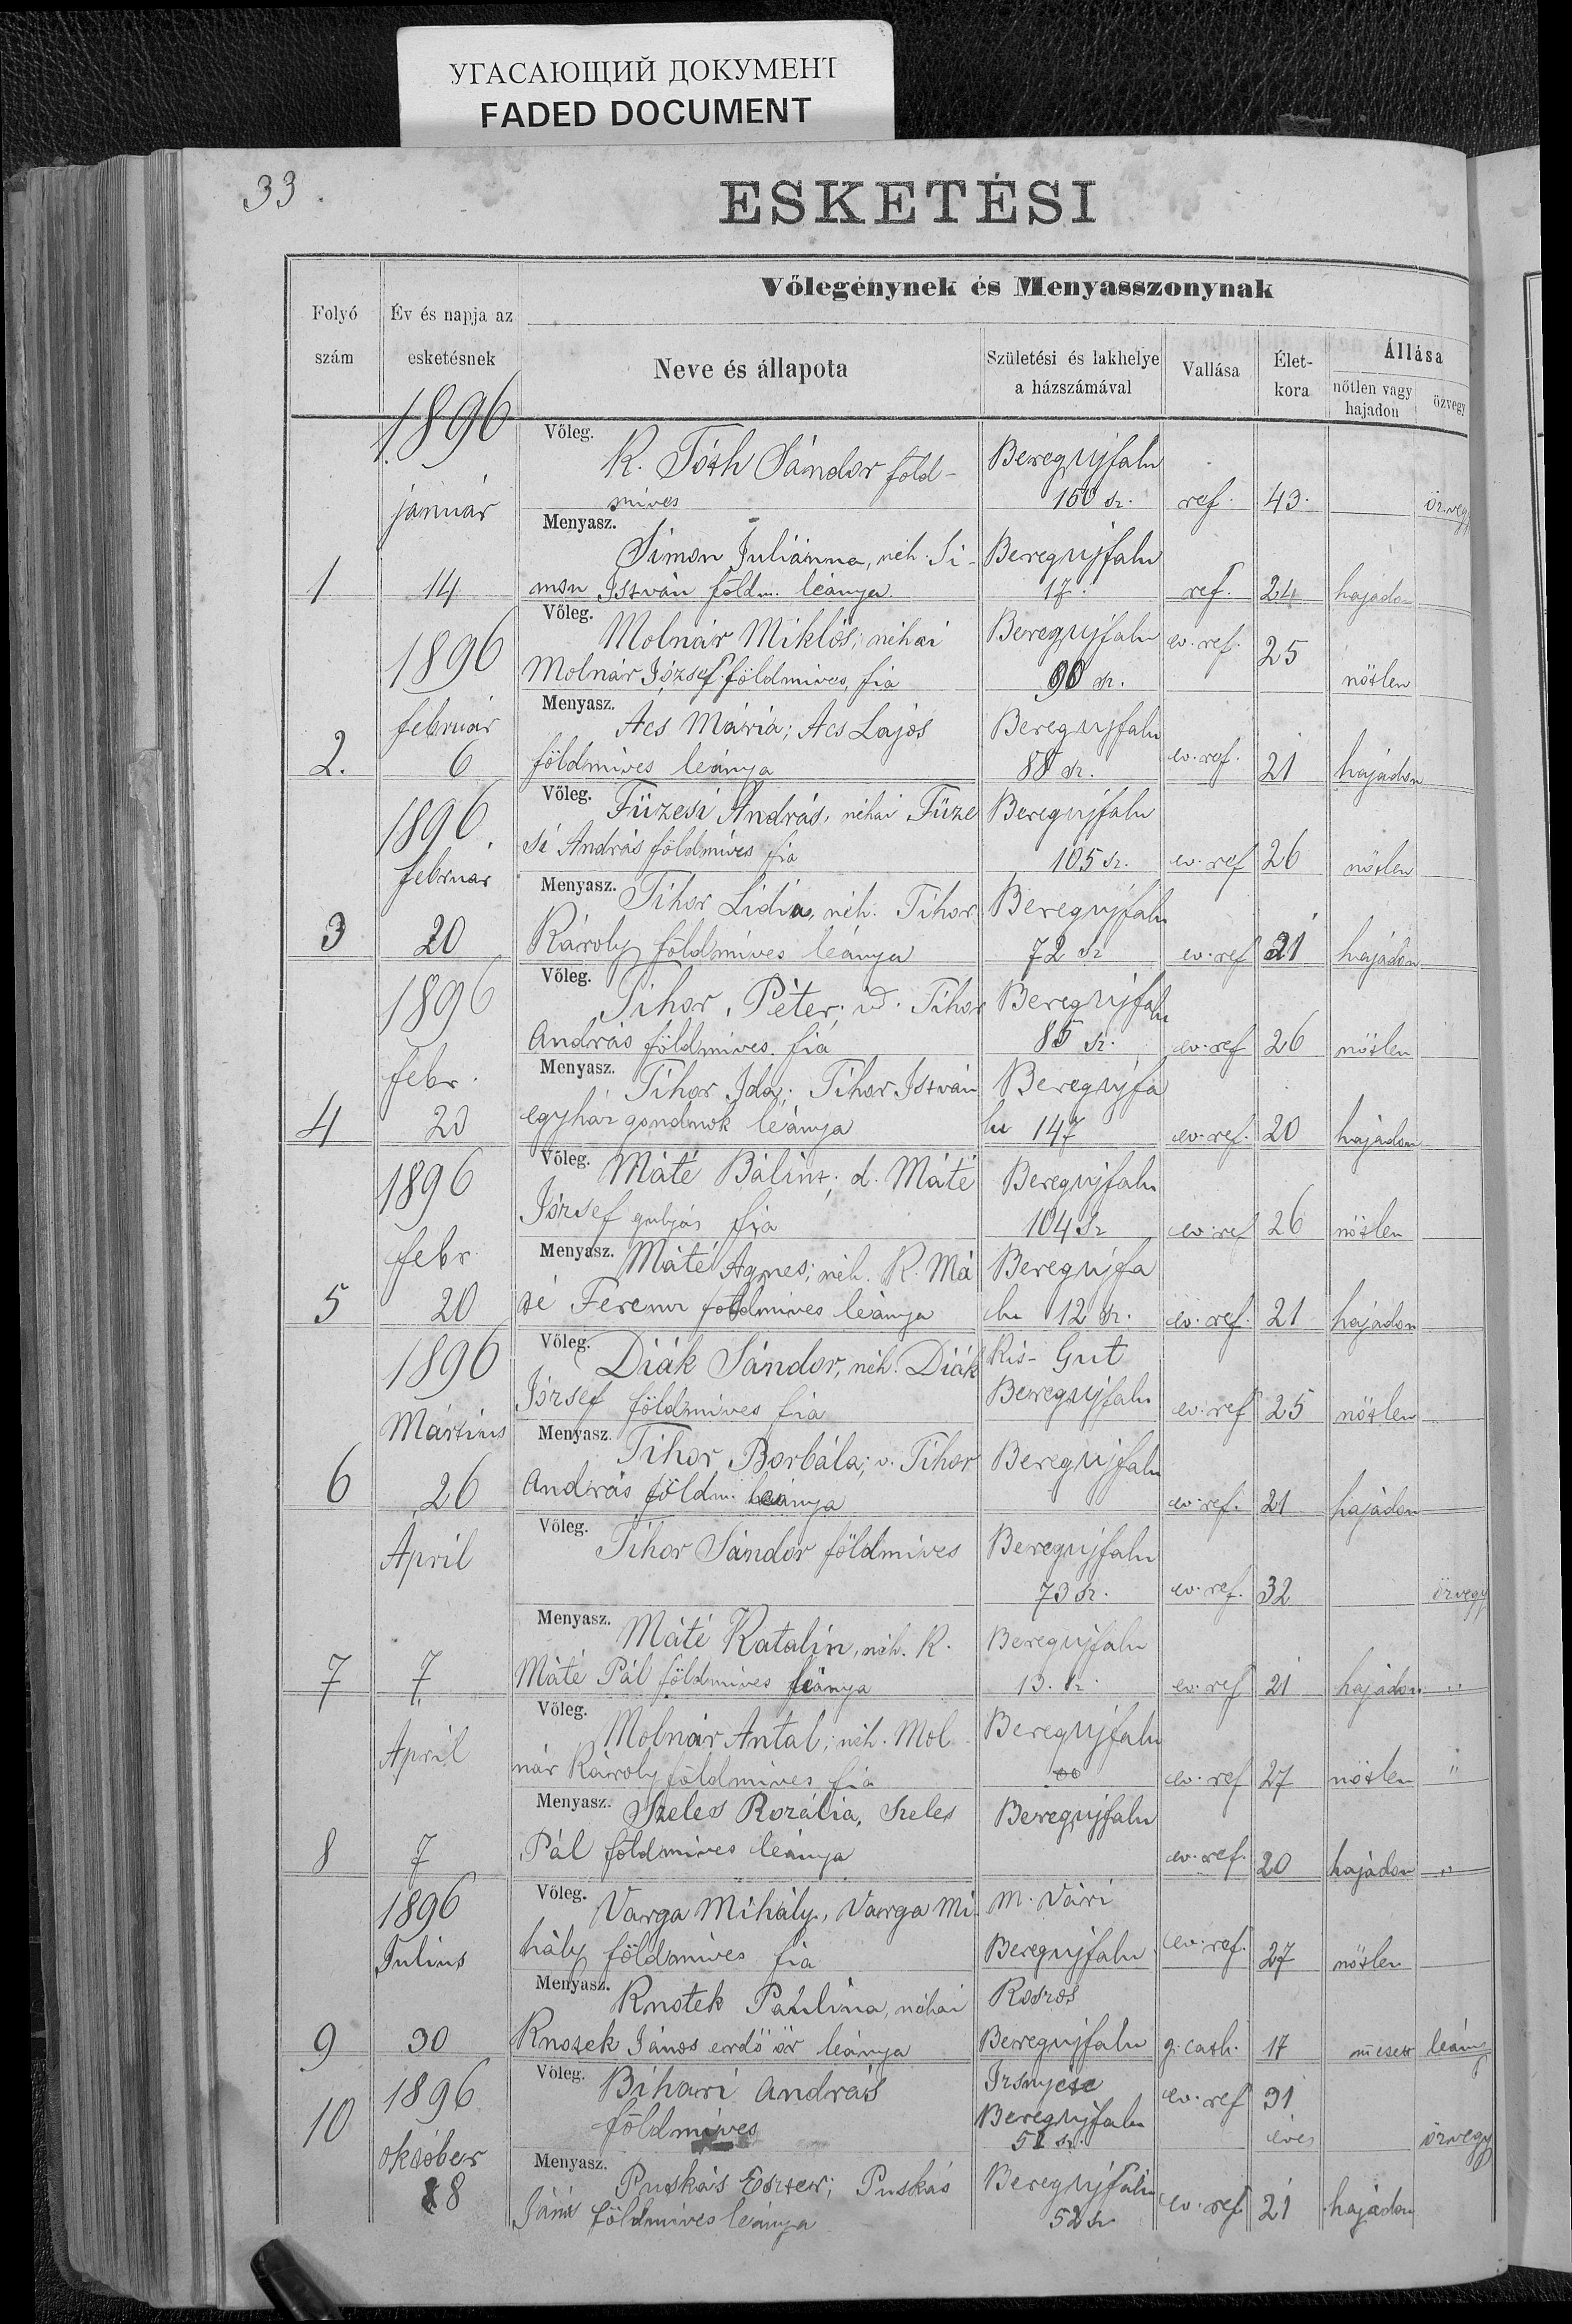 УГАСАЮЩИЙ ДОКУМЕНТ
FADED DOCUMENT
33.
ESKETÉSI
Vőlegénynek és Menyasszonynak
Folyó szám
Év és napja az esketésnek
Neve és állapota
Születési és lakhelye a házszámával
Vallása
Élet-kora
Állása
nőtlen vagy hajadon
özvegy
1896
Vőleg.
K. Tóth Sándor föld- Beregujfalu
január míves 150 sz. ref. 43. özvegy
Menyasz.
Simon Juliánna, néh. Si- Beregujfalu
1 14 mon István földm. leánya 17. ref. 24 hajado
Vőleg.
Molnár Miklós; néhai Beregujfalu ev. ref. 25
1896 Molnár József földmives, fia 90 sz. nőtlen
Menyasz.
február Acs Mária; Acs Lajos Beregujfalu
2. 6 földmives leánya 88 sz. ev. ref. 21 hajadon
Vőleg.
1896. Füzesi András, néhai Füze Beregujfalu
február si András földmives fia 105 sz. ev. ref 26 nőtlen
Menyasz.
Tihor Lidia, néh. Tihor Beregujfalu
3 20 Károly földmives leánya 72 sz ev. ref 21 hajadon
Vőleg.
1896 Tihor Péter; id. Tihor Beregujfalu
András földmives fia 85 sz. ev. ref 26 nőtlen
Menyasz.
febr. Tihor Ida; Tihor István Beregujfa
4 20 egyház gondnok leánya lu 147 ev. ref. 20 hajadon
Vőleg.
1896 Máté Bálint; d. Máté Beregujfalu
József gulyás fia 104 sz ev. ref 26 nőtlen
Menyasz.
febr. Máté Agnes; néh. K. Má Beregujfa
5 20 té Ferencz földmives leánya lu 12 sz. ev. ref. 21 hajadon
Vőleg.
1896 Diák Sándor, néh. Diák Kis- Gut
József földmives fia Beregujfalu ev. ref 25 nőtlen
Menyasz.
Mártius Tihor Borbála; v. Tihor Beregujfalu
6 26 András földm. leánya ev. ref. 21 hajadon
Vőleg.
April Tihor Sándor földmives Beregujfalu
73 sz. ev. ref. 32 özvegy
Menyasz.
Máté Katalin, néh. K. Beregujfalu
7 7 Máté Pál földmives leánya 13. sz. ev. ref 21 hajadon "
Vőleg.
April Molnár Antal; néh. Mol Beregujfalu
nár Károly földmives fia ev. ref 27 nőtlen "
Menyasz.
Szeles Rozália, Szeles Beregujfalu
8 7 Pál földmives leánya ev. ref. 20 hajadon "
Vőleg.
1896 Varga Mihály, Varga Mi- M. Vári
Julius hály földmives fia Beregujfalu ev. ref. 27 nőtlen
Menyasz.
Knotek Paulina, néhai
9 30 Knotek János erdő őr leánya Beregujfalu g. cath. 17 leány
Vőleg.
1896 Bihari András ev. ref 31
10 földmives Beregujfalu éves özvegy
október
Menyasz.
Puskás Eszter; Puskás Beregujfalu
8 János földmives leánya 52 sz ev. ref. 21 hajadon